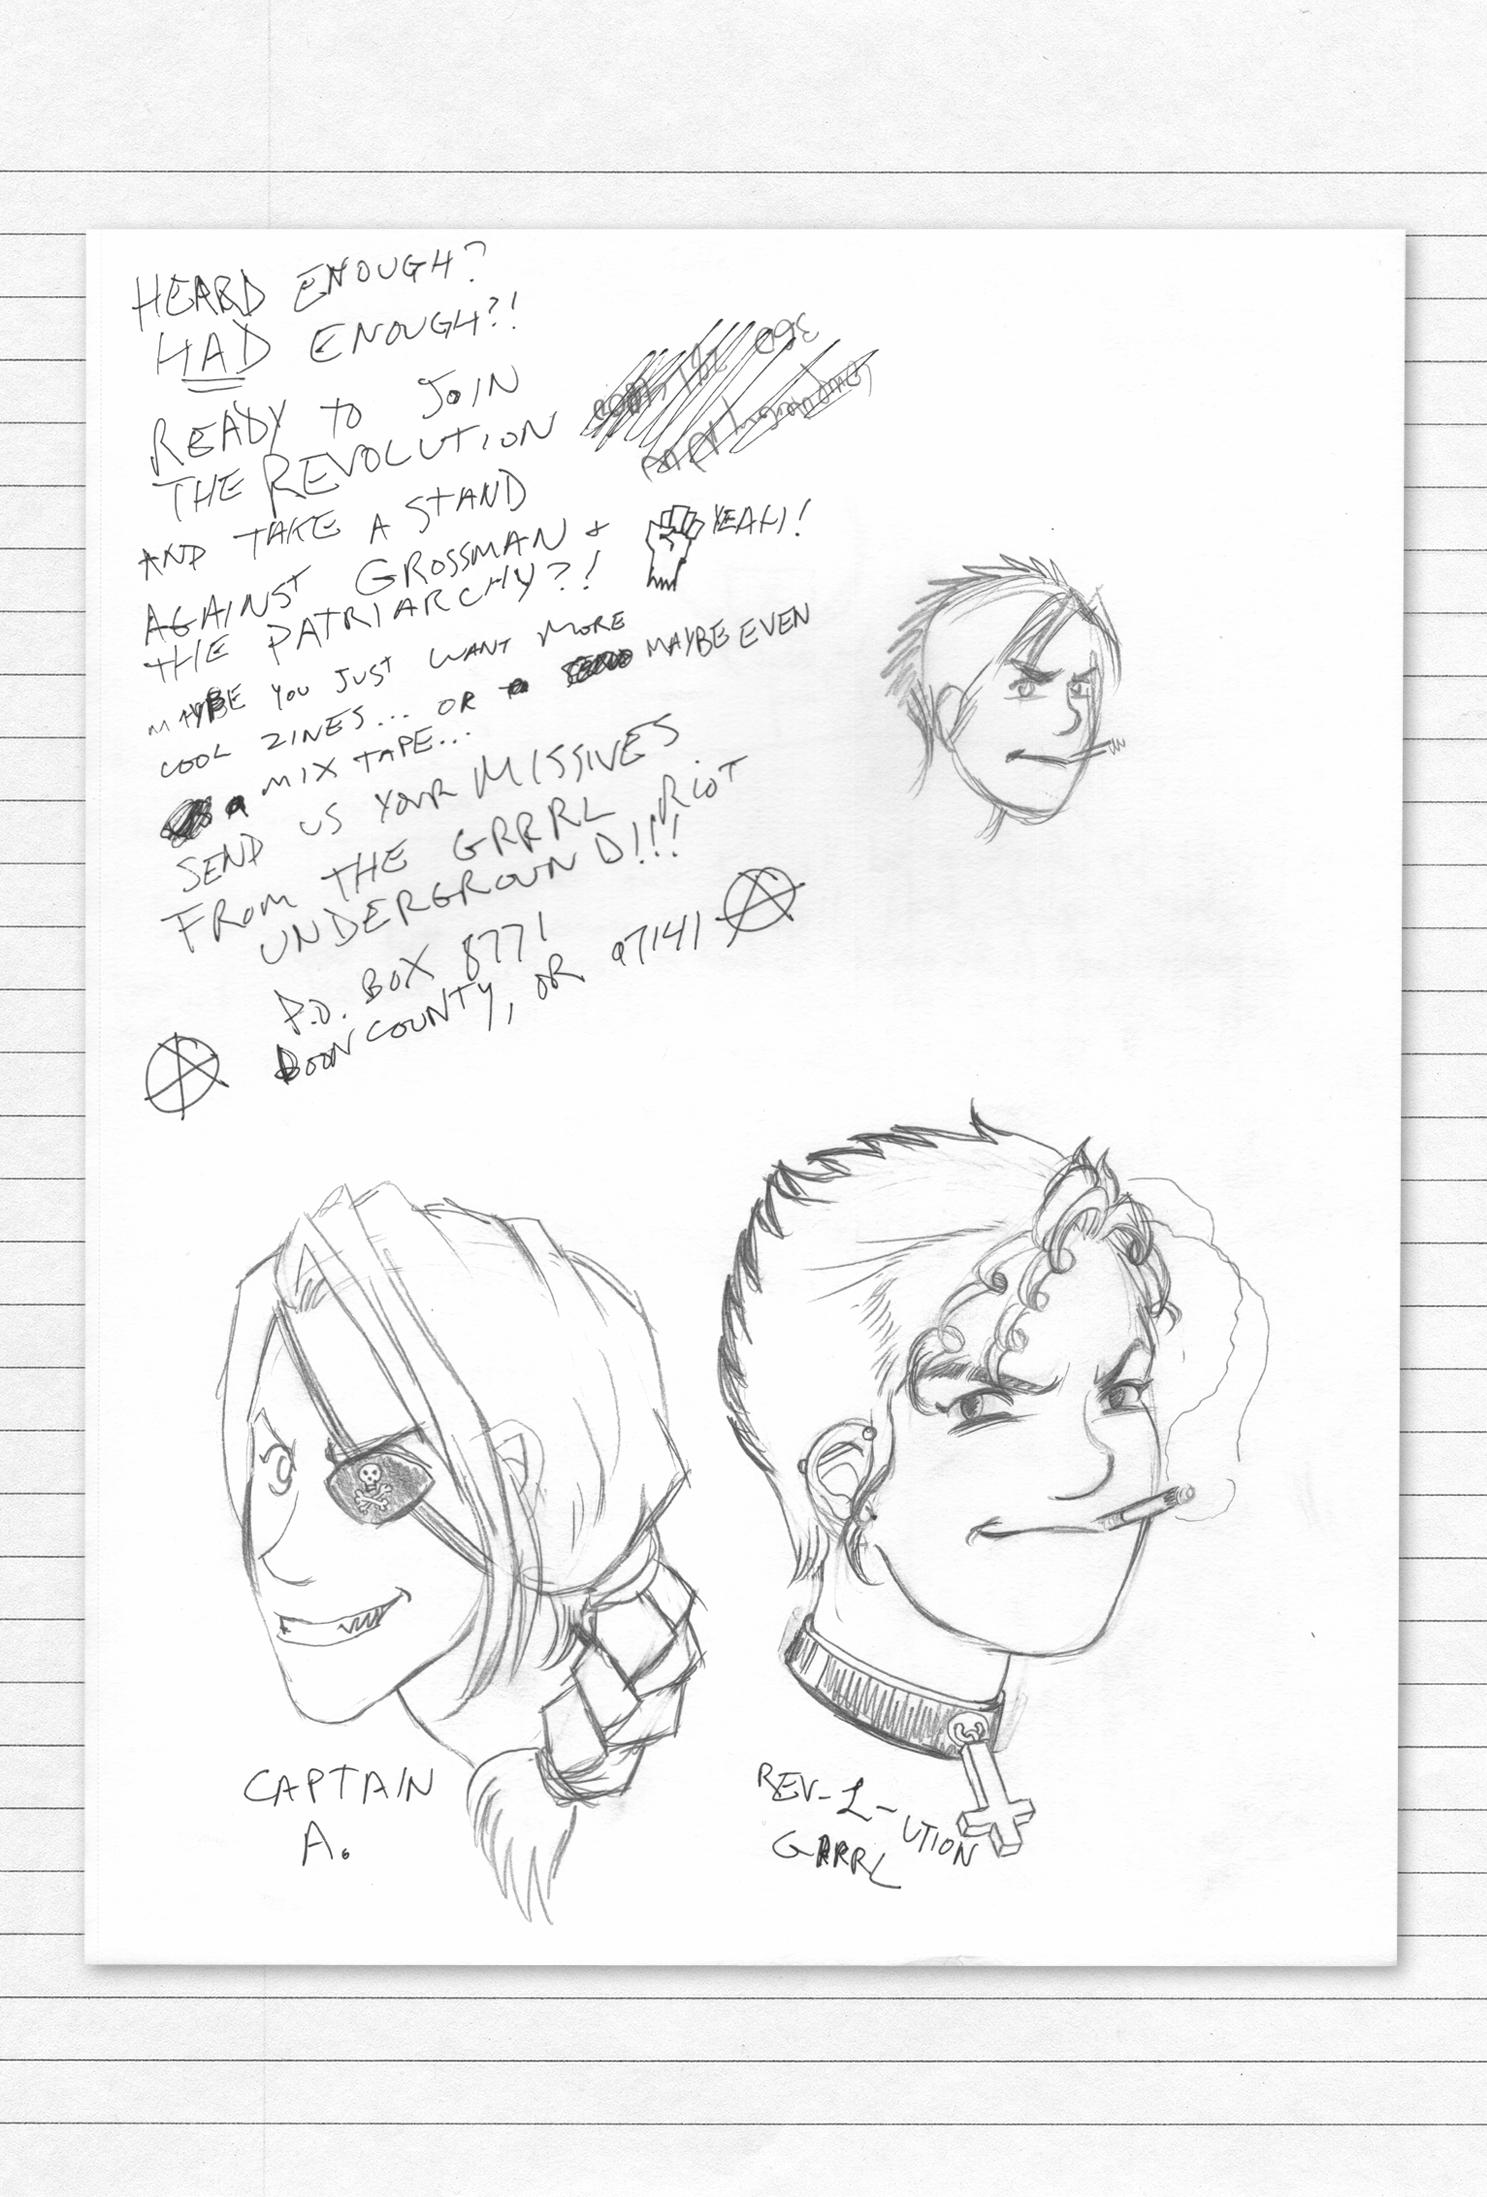 HEARD ENOUGH?
HAD ENOUGH?!
READY TO JOIN
THE REVOLUTION
AND TAKE A STAND
AGAINST GROSSMAN +
THE PATRIARCHY?!
YEAH!
MAYBE YOU JUST WANT MORE
COOL ZINES... OR MAYBE EVEN
A MIX TAPE...
SEND US YOUR MISSIVES
FROM THE GRRRL RIOT
UNDERGROUND!!!
P.O. BOX 8771
BOON COUNTY, OR 97141
CAPTAIN
A.
REV-L-UTION
GRRRL